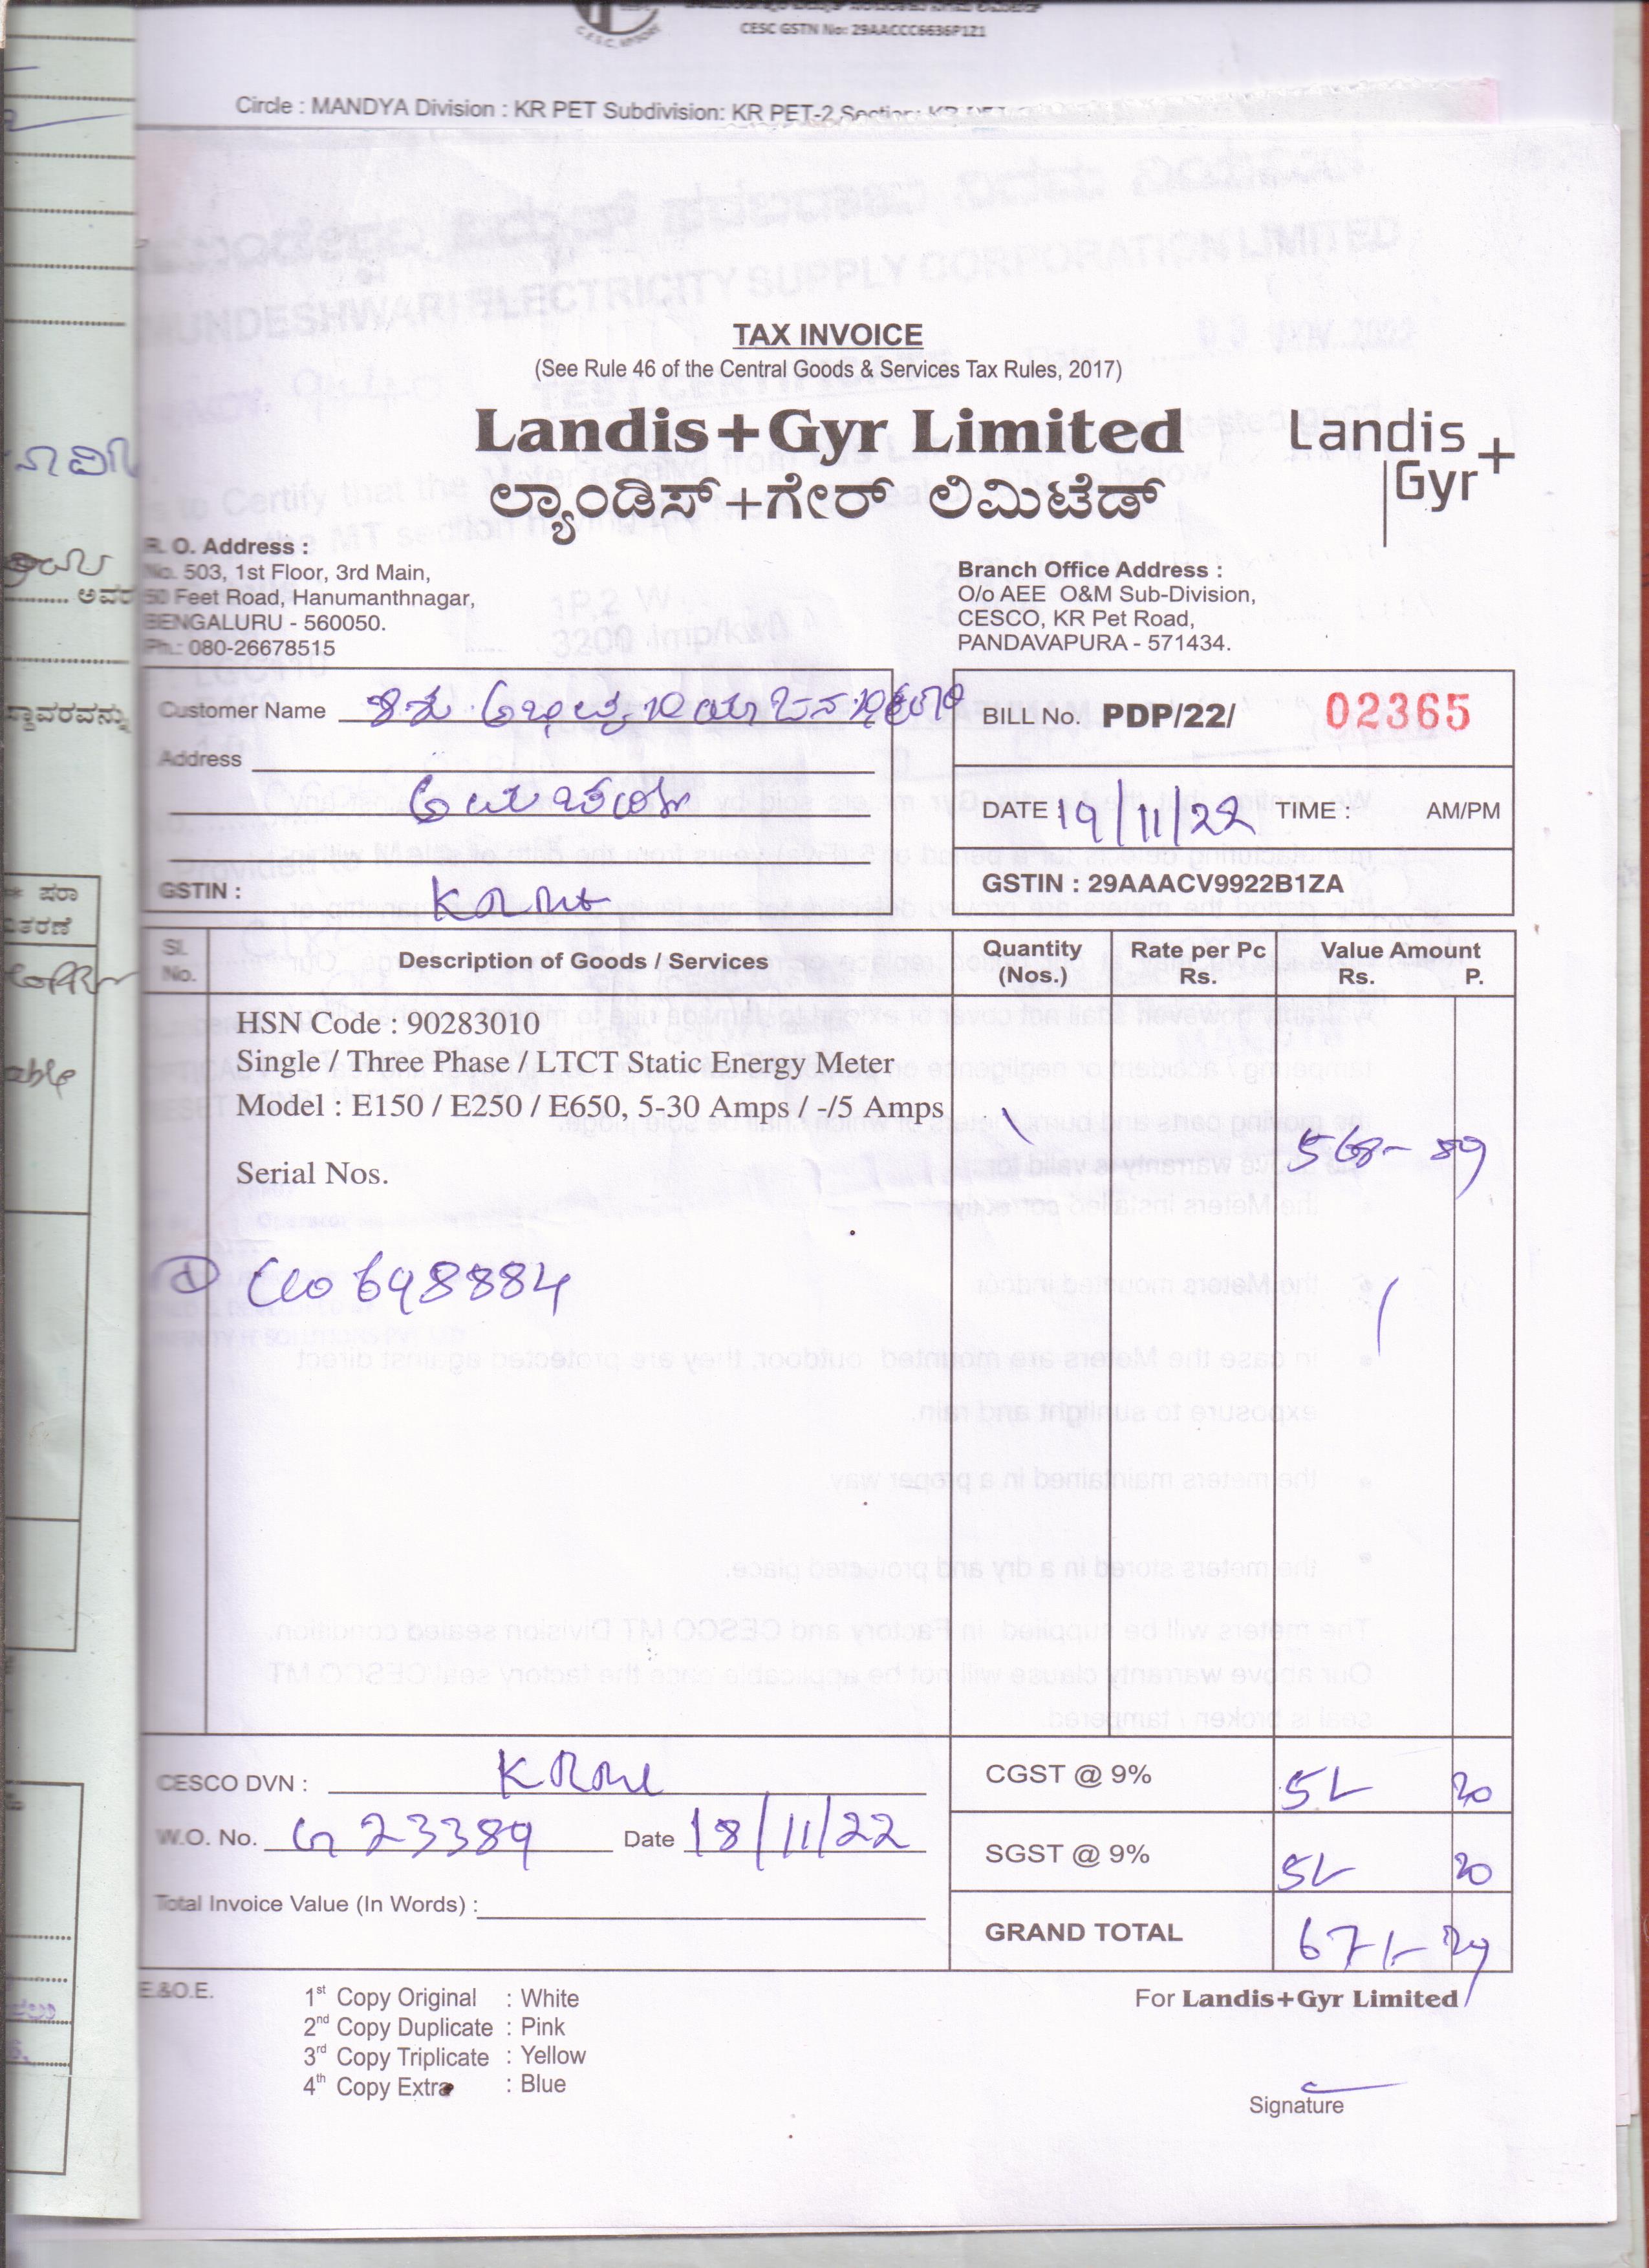 CESC GSTN No: 29AACCC6636P1Z1
Circle : MANDYA Division : KR PET Subdivision: KR PET-2 Section:
TAX INVOICE
(See Rule 46 of the Central Goods & Services Tax Rules, 2017)
Landis+Gyr Limited
Landis+
Gyr
ಲ್ಯಾಂಡಿಸ್+ಗೇರ್ ಲಿಮಿಟೆಡ್
R. O. Address :
No. 503, 1st Floor, 3rd Main,
50 Feet Road, Hanumanthnagar,
BENGALURU - 560050.
Ph.: 080-26678515
Branch Office Address :
O/o AEE O&M Sub-Division,
CESCO, KR Pet Road,
PANDAVAPURA - 571434.
Customer Name
Address
GSTIN :
BILL No. PDP/22/ 02365
DATE : 19/11/22 TIME : AM/PM
GSTIN : 29AAACV9922B1ZA
Sl. No. Description of Goods / Services Quantity (Nos.) Rate per Pc Rs. Value Amount Rs. P.
HSN Code : 90283010
Single / Three Phase / LTCT Static Energy Meter
Model : E150 / E250 / E650, 5-30 Amps / -/5 Amps
568- 89
Serial Nos.
6498884
CESCO DVN :
CGST @ 9% 51 20
W.O. No. G 23389 Date 18/11/22
SGST @ 9% 51 20
Total Invoice Value (In Words) :
GRAND TOTAL 671- 29
E.&O.E.
1st Copy Original : White
2nd Copy Duplicate : Pink
3rd Copy Triplicate : Yellow
4th Copy Extra : Blue
For Landis+Gyr Limited
Signature